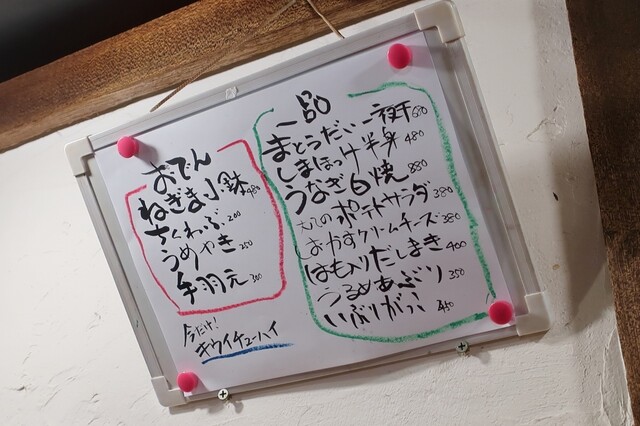 おでん
ねぎま小鉢 480
ちくわぶ 200
うめやき 250
手羽元 300
今だけ!
キウイチューハイ
一品
まとうだい一夜干 680
しまほっけ半身 480
うなぎ白焼 880
大人のポテトサラダ 380
おかかクリームチーズ 380
はも入りだしまき 400
うるめあぶり 350
いぶりがっこ 450